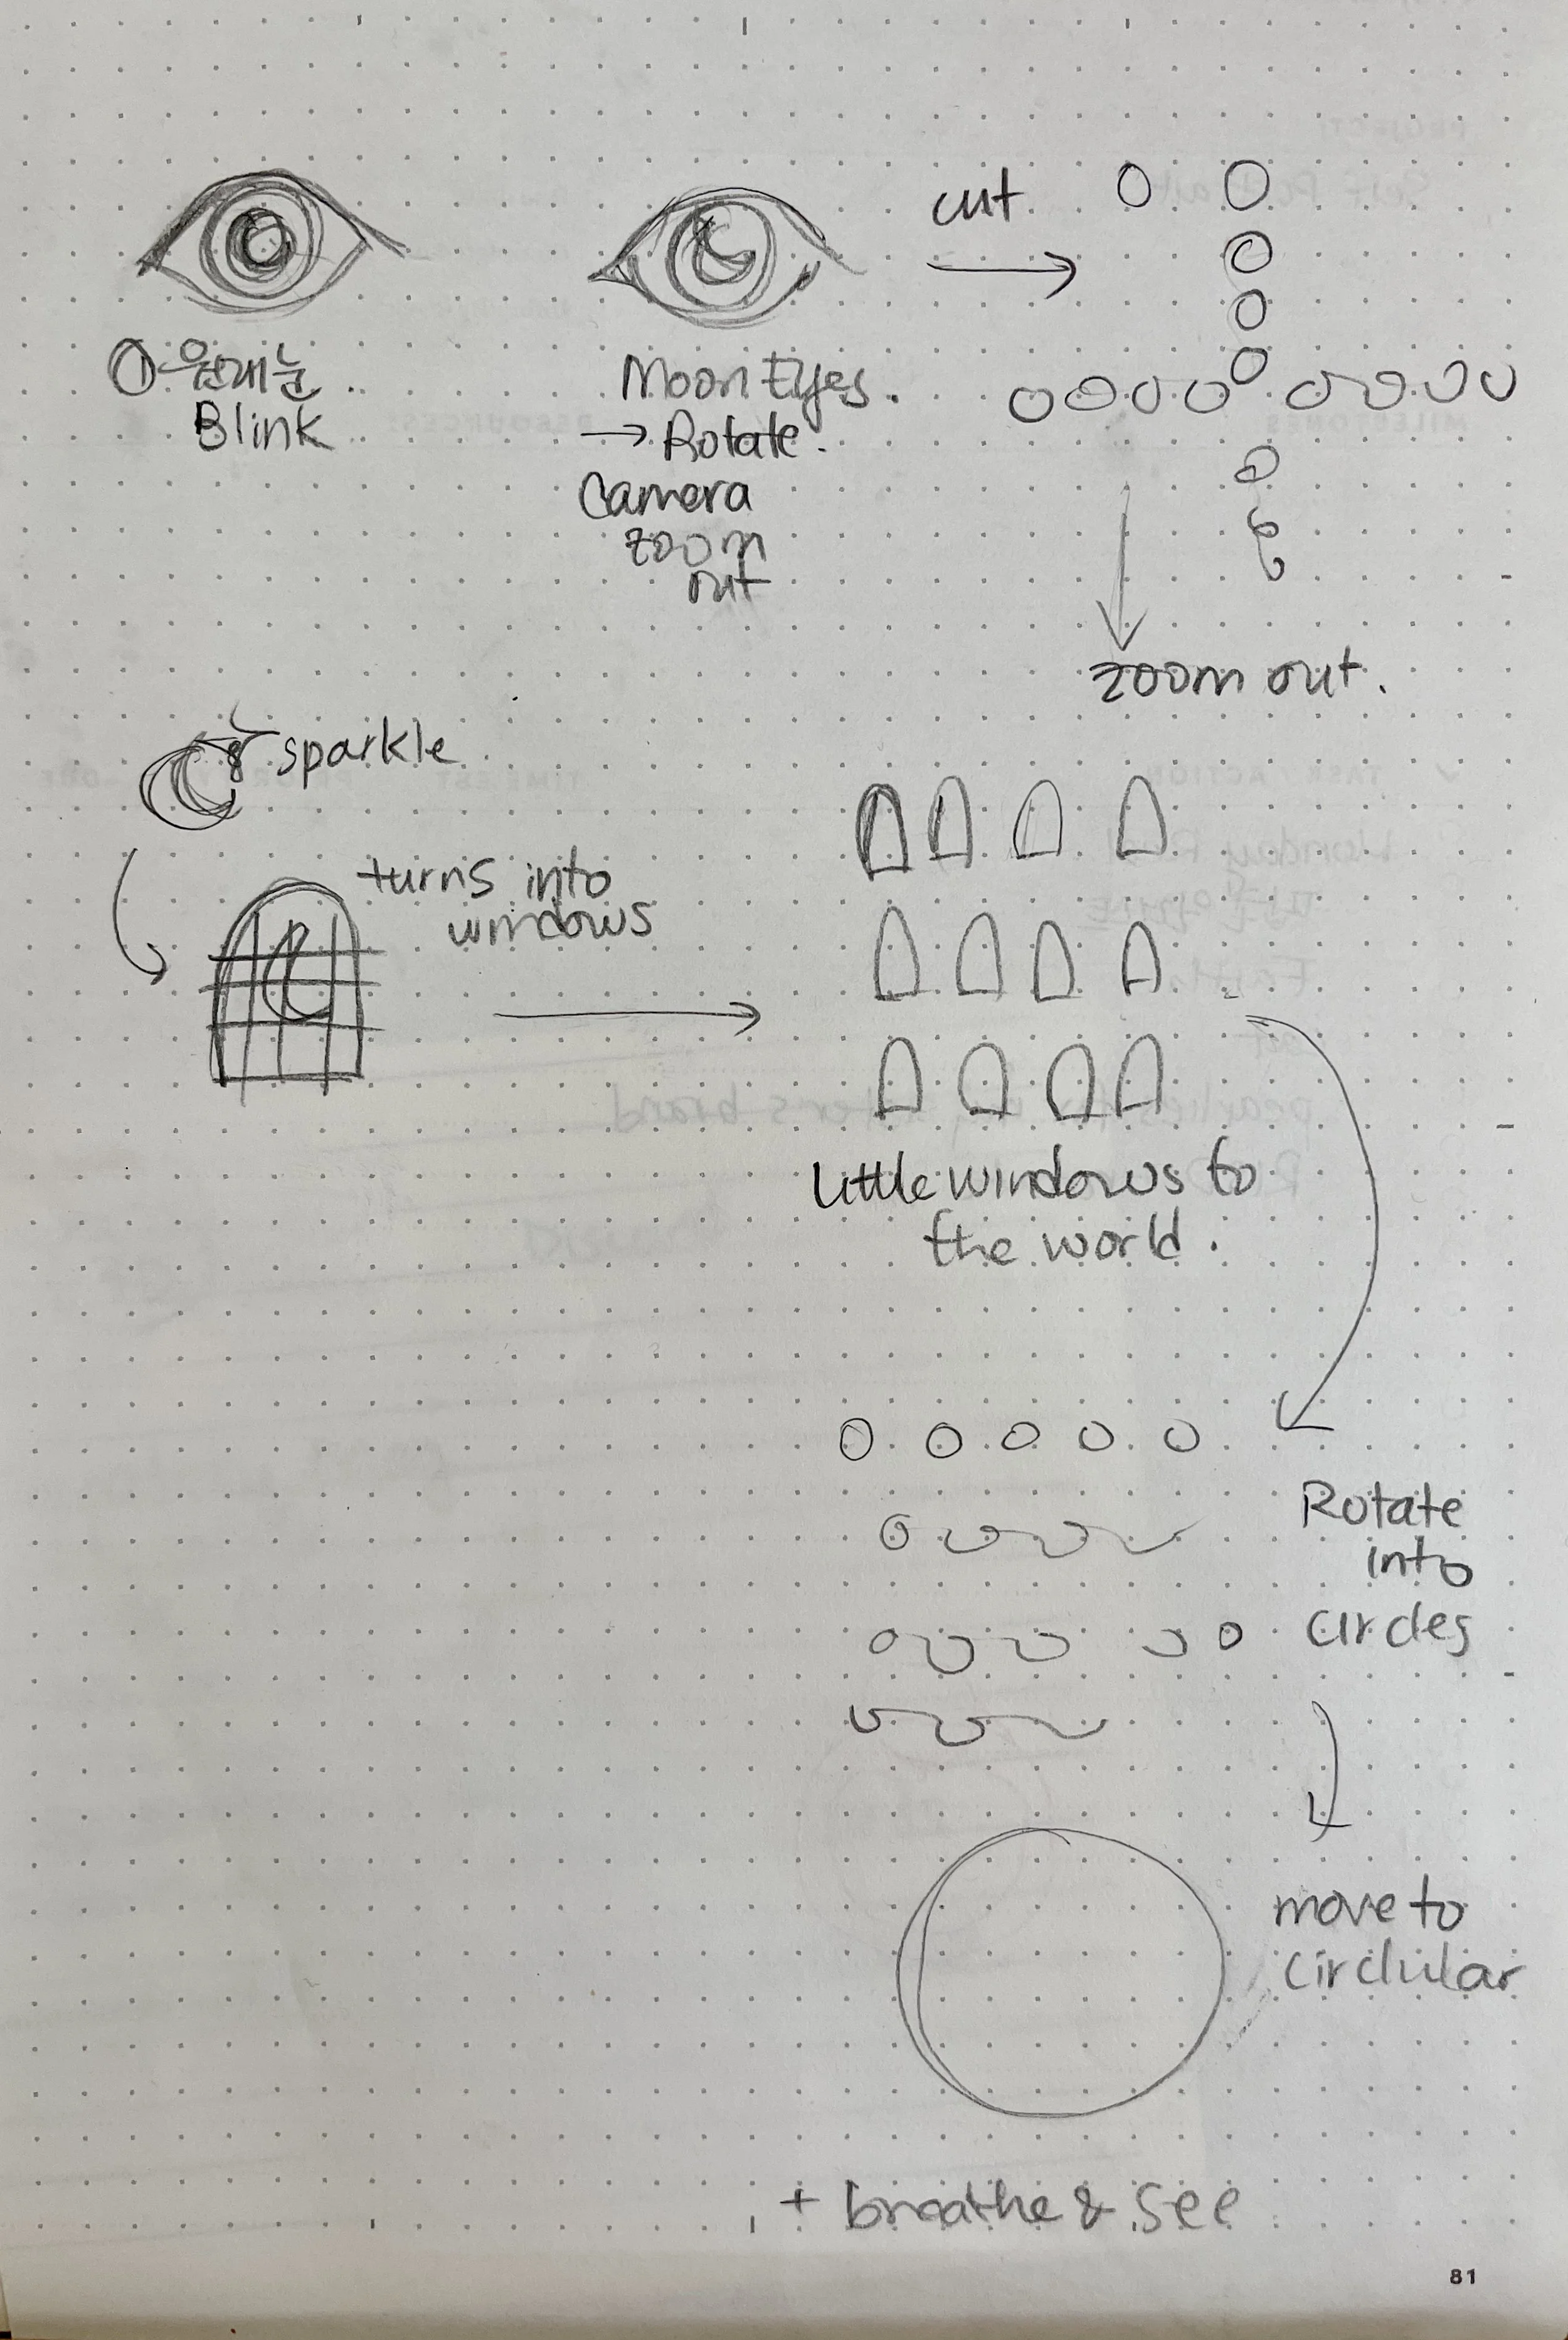 ① 원래눈
Blink
Moon Eyes.
→ Rotate.
Camera
zoom
out
cut
→
zoom out.
sparkle
turns into
windows
Little windows to
the world.
Rotate
into
circles
move to
circlular
+ breathe & see
81